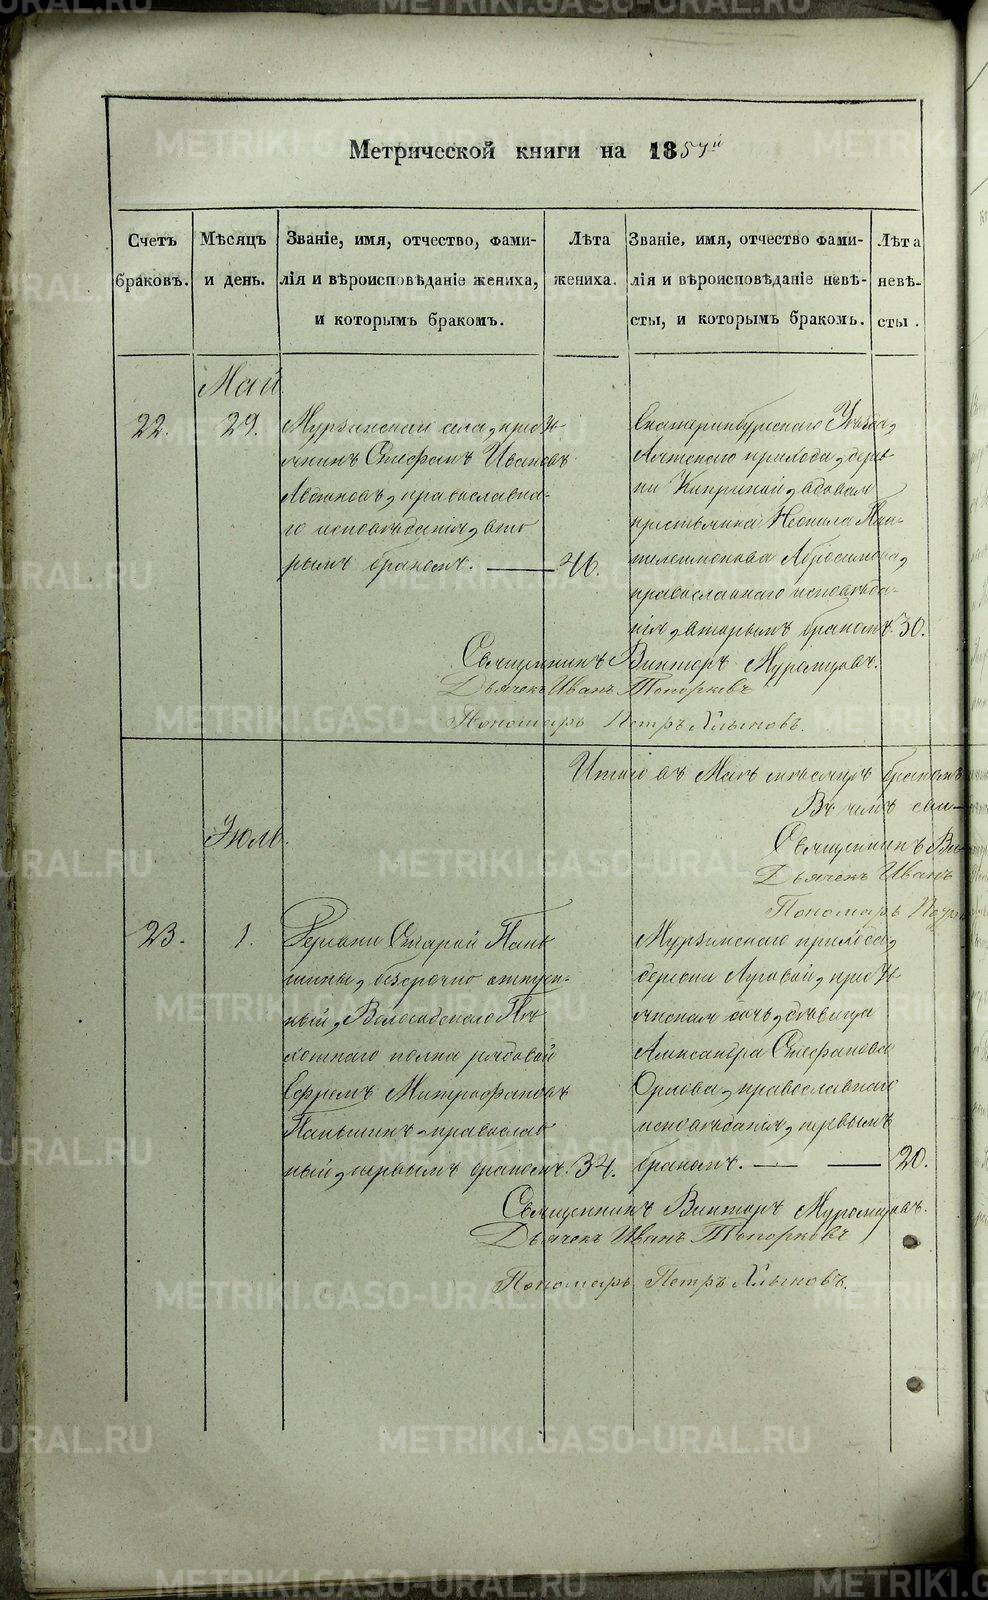 Метрической книги на 1857й
Счетъ браковъ.
Мѣсяцъ и день.
Званіе, имя, отчество, фами-
лія и вѣроисповѣданіе жениха,
и которымъ бракомъ.
Лѣта жениха.
Званіе, имя, отчество фами-
лія и вѣроисповѣданіе невѣ-
сты, и которымъ бракомъ.
Лѣта невѣ-
сты.
Май
22.
29.
Мурзинскаи села, кресть
янинъ Стефанъ Ивановъ
православна-
го исповѣданія, вто
рымъ бракомъ.
46.
Екатеринбургскаго Уѣзда,
прихода, дерев
ни вдовая
крестьянка Неонила Пан-
телеимонова Абросимова,
православнаго исповѣда-
нія, вторымъ бракомъ.
30.
Священникъ Викторъ Муромцовъ.
Дьячекъ Иванъ Топорковъ
Пономарь Петръ Хлыновъ.
Итого въ Маѣ мѣсяцѣ браковъ
Въ чемъ сви-
Священникъ Ви
Дьячекъ Иванъ
Пономарь
Іюль.
23.
1.
Деревни Старой Пань
шины, безсрочно отпуск-
ный, Вологодскаго Пѣ
хотнаго полка рядовой
Ефремъ Митрофановъ
Паньшинъ, православ
ный, первымъ бракомъ.
34.
Мурзинскаго прихода,
деревни Луговой, кресть
янская дочь, дѣвица
Александра Стефанова
Орлова, православнаго
исповѣданія, первымъ
бракомъ.
20.
Священникъ Викторъ Муромцовъ.
Дьячекъ Иванъ Топорковъ
Пономарь Петръ Хлыновъ.
METRIKI.GASO-URAL.RU